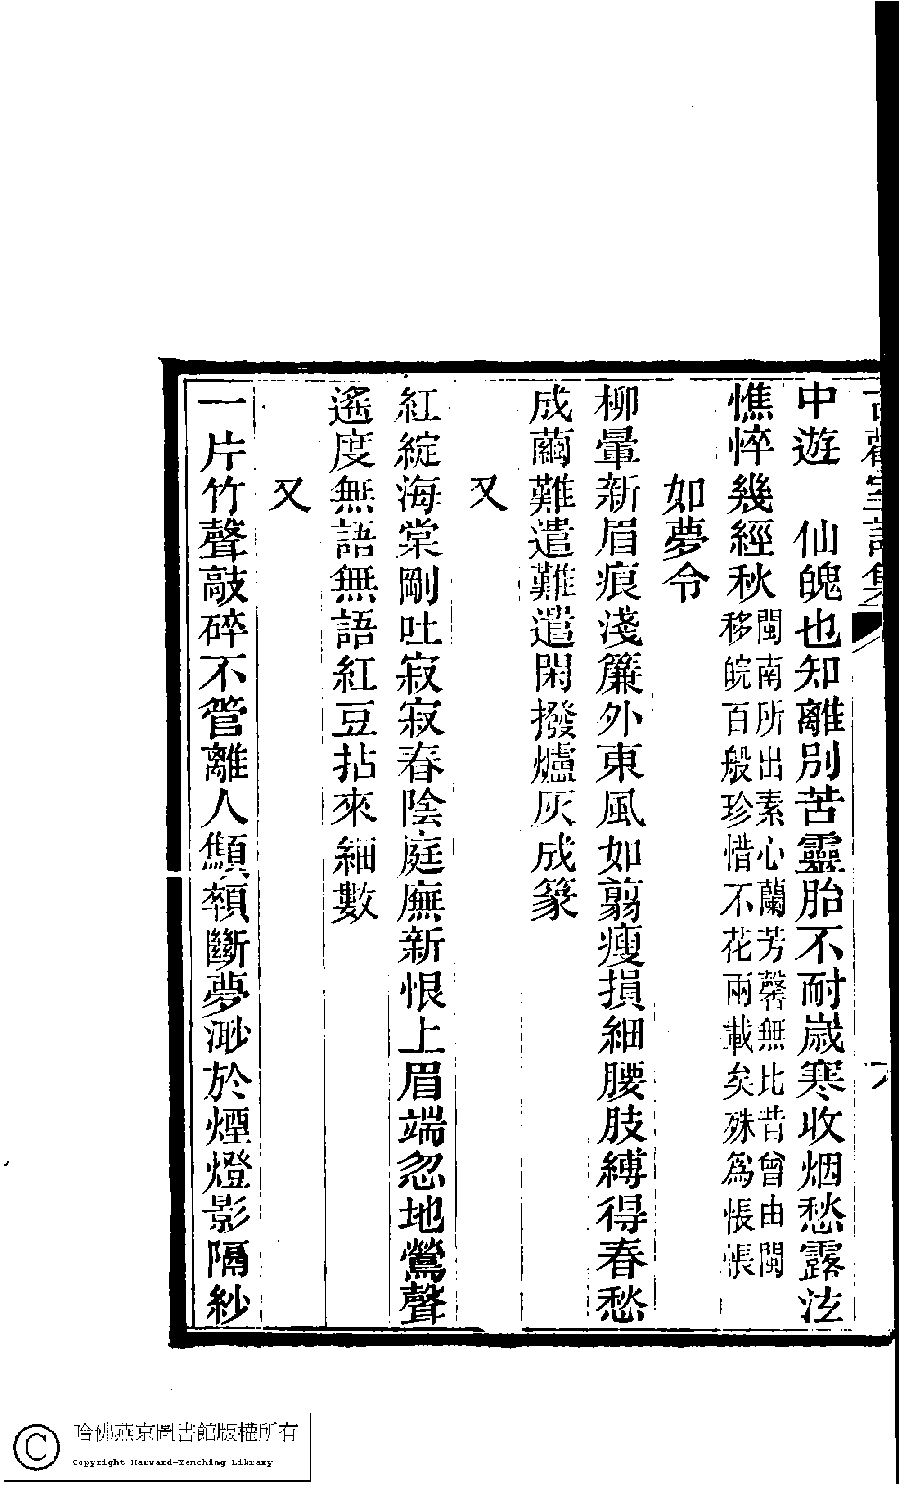 中遊　仙魄也知離別苦靈胎不耐歲寒收烟愁露泫
憔悴幾經秋閩南所出素心蘭芳馨無比昔曾由閩
移皖百般珍惜不花兩載矣殊爲悵悵
如夢令
柳暈新眉痕淺簾外東風如翦瘦損細腰肢縛得春愁
成繭難遣難遣閑撥爐灰成篆
又
紅綻海棠剛吐寂寂春陰庭廡新恨上眉端忽地鶯聲
遙度無語無語紅豆拈來細數
又
一片竹聲敲碎不管離人顦顇斷夢渺於煙燈影隔紗
哈佛燕京圖書館版權所有
Copyright Harvard-Yenching Library